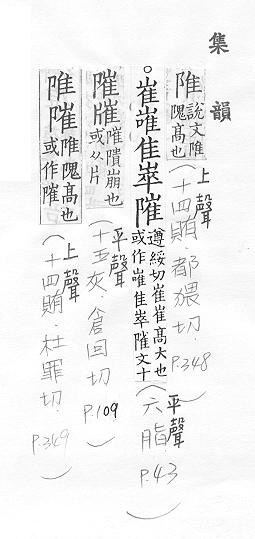 集韻
陮說文陮隗高也(上聲十四賄.都猥切.P.348)
。崔嗺隹崒𨻵遵綏切崔崔高大也或作嗺隹崒𨻵文十(平聲六脂.P.43)
𨻵𤗯𨻵隤崩也或从片(平聲十五灰.倉回切.P.109)
陮𨻵陮隗高也或作𨻵(上聲十四賄.杜罪切.P.349)